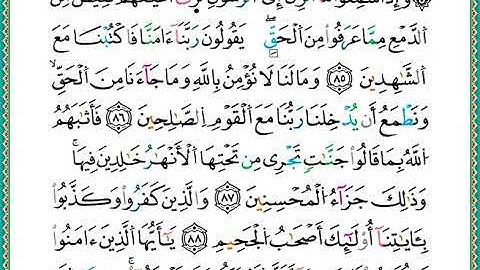 وَإِذَا سَمِعُوا۟ مَآ أُنزِلَ إِلَى ٱلرَّسُولِ تَرَىٰٓ أَعْيُنَهُمْ تَفِيضُ مِنَ
ٱلدَّمْعِ مِمَّا عَرَفُوا۟ مِنَ ٱلْحَقِّ ۖ يَقُولُونَ رَبَّنَآ ءَامَنَّا فَٱكْتُبْنَا مَعَ
ٱلشَّٰهِدِينَ ٨٥ وَمَا لَنَا لَا نُؤْمِنُ بِٱللَّهِ وَمَا جَآءَنَا مِنَ ٱلْحَقِّ
وَنَطْمَعُ أَن يُدْخِلَنَا رَبُّنَا مَعَ ٱلْقَوْمِ ٱلصَّٰلِحِينَ ٨٦ فَأَثَٰبَهُمُ
ٱللَّهُ بِمَا قَالُوا۟ جَنَّٰتٍ تَجْرِى مِن تَحْتِهَا ٱلْأَنْهَٰرُ خَٰلِدِينَ فِيهَا ۚ
وَذَٰلِكَ جَزَآءُ ٱلْمُحْسِنِينَ ٨٧ وَٱلَّذِينَ كَفَرُوا۟ وَكَذَّبُوا۟
بِـَٔايَٰتِنَآ أُو۟لَٰٓئِكَ أَصْحَٰبُ ٱلْجَحِيمِ ٨٨ يَٰٓأَيُّهَا ٱلَّذِينَ ءَامَنُوا۟